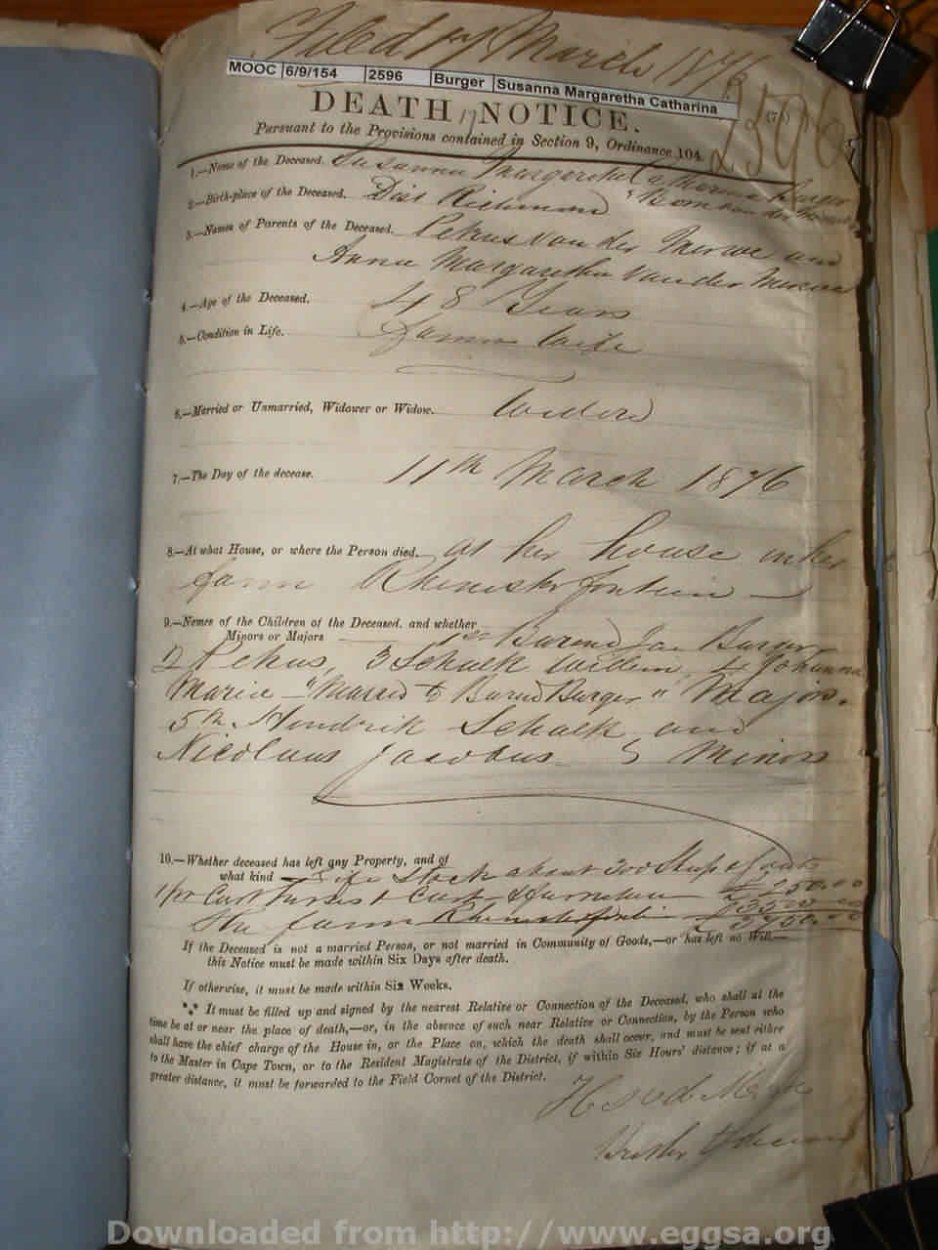 Filed 17 March 1876
MOOC 6/9/154 2596 Burger Susanna Margaretha Catharina
DEATH NOTICE.
2596
Pursuant to the Provisions contained in Section 9, Ordinance 104
1.—Name of the Deceased. Susanna Margaretha Catharina Burger
Born van der Merwe
2.—Birth-place of the Deceased. Dist Richmond
3.—Names of Parents of the Deceased. Petrus van der Merwe and
Anna Margaretha van der Merwe
4.—Age of the Deceased. 48 Years
5.—Condition in Life. Farmers Wife
6.—Married or Unmarried, Widower or Widow. Widow
7.—The Day of the decease. 11th March 1876
8.—At what House, or where the Person died. at her house on her
farm Rhenoster fontein
9.—Names of the Children of the Deceased, and whether
Minors or Majors 1st Barend Jac Burger
2 Petrus, 3 Schalk Willem, 4 Johanna
Maria "Married to Barend Burger" Majors.
5th Hendrik Schalk and
Nicolaas Jacobus Minors
10.—Whether deceased has left any Property, and of
what kind Live Stock about 300 Sheep & Goats
£ 250.00
The farm Rhenosterfontein
£ 3750.00
If the Deceased is not a married Person, or not married in Community of Goods,—or has left no Will—
this Notice must be made within Six Days after death.
If otherwise, it must be made within Six Weeks.
It must be filled up and signed by the nearest Relative or Connection of the Deceased, who shall at the
time be at or near the place of death,—or, in the absence of such near Relative or Connection, by the Person who
shall have the chief charge of the House in, or the Place on, which the death shall occur, and must be sent either
to the Master in Cape Town, or to the Resident Magistrate of the District, if within Six Hours' distance; if at a
greater distance, it must be forwarded to the Field Cornet of the District.
Downloaded from http://www.eggsa.org